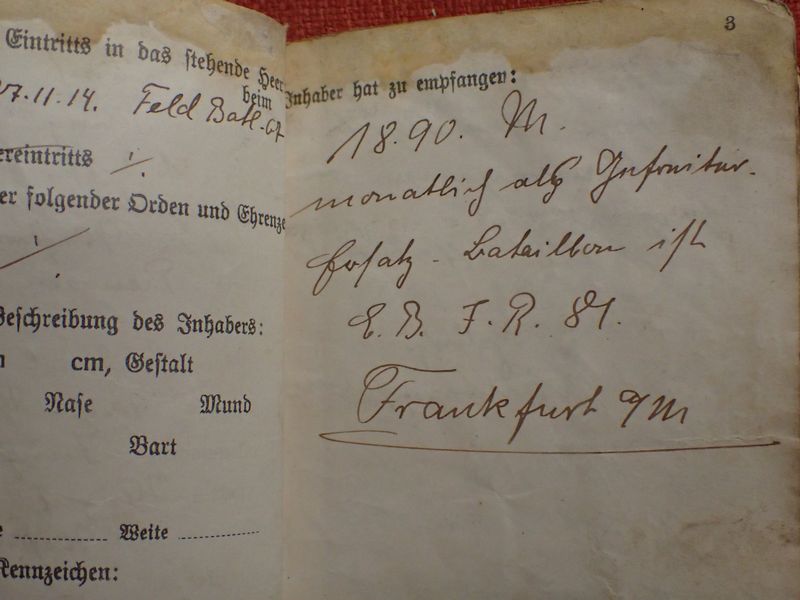 Eintritts in das stehende Heer
7.11.14. Feld Batl. 67
reintritts
er folgender Orden und Ehrenze
Beschreibung des Inhabers:
cm, Gestalt
Nase Mund
Bart
Weite
Kennzeichen:
3
beim Inhaber hat zu empfangen:
18.90. M.
monatlich als
Ersatz-Bataillon ist
E. B. J. R. 81.
Frankfurt a/M